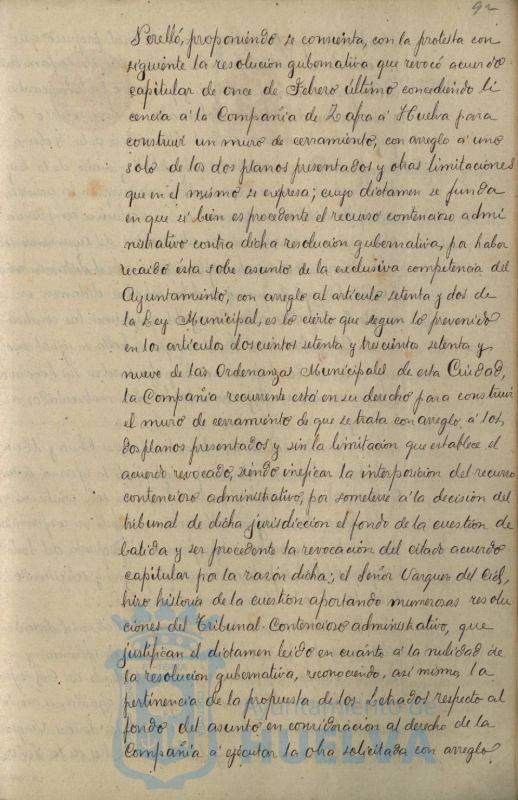 92
Perelló, proponiendo se consienta, con la protesta con
siguiente la resolucion gubernativa que revocó acuerdo
capitular de once de Febrero último concediendo li
cencia á la Compañia de Zafra á Huelva para
construir un muro de cerramiento, con arreglo á uno
solo de los dos planos presentados y otras limitaciones
que en él mismo se expresa; cuyo dictamen se funda
en que si bien es procedente el recurso contencioso admi
nistrativo contra dicha resolucion gubernativa, por haber
recaido ésta sobre asunto de la exclusiva competencia del
Ayuntamiento, con arreglo al artículo setenta y dos de
la Ley Municipal, es lo cierto que segun lo prevenido
en los artículos doscientos setenta y trescientos setenta y
nueve de las Ordenanzas Municipales de esta Ciudad,
la Compañia recurrente está en su derecho para construir
el muro de cerramiento de que se trata con arreglo á los
dos planos presentados y sin la limitacion que establece el
acuerdo revocado, siendo ineficaz la interposicion del recurso
contencioso administrativo, por someterse á la decision del
tribunal de dicha jurisdiccion el fondo de la cuestion de
batida y ser procedente la revocacion del citado acuerdo
capitular por la razon dicha; el Señor Vazquez del Cid,
hizo historia de la cuestion aportando numerosas resolu
ciones del Tribunal Contencioso administrativo, que
justifican el dictamen leido en cuanto á la nulidad de
la resolucion gubernativa, reconociendo, asi mismo, la
pertinencia de la propuesta de los Letrados respecto al
fondo del asunto en consideracion al derecho de la
Compañia á ejecutar la obra solicitada con arreglo
HUELVA